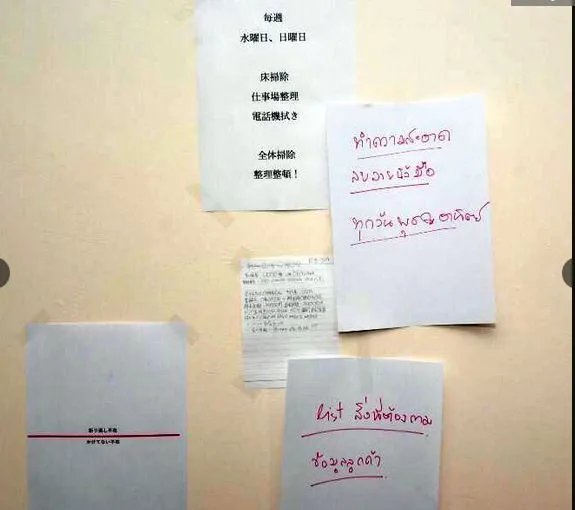 毎週
水曜日、日曜日
床掃除
仕事場整理
電話機拭き
全体掃除
整理整頓！
ทำความสะอาด
ลบลายนิ้วมือ
ทุกวันพุธ,อาทิตย์
折り返し不在
かけてない不在
list สิ่งที่ต้องถาม
ข้อมูลลูกค้า